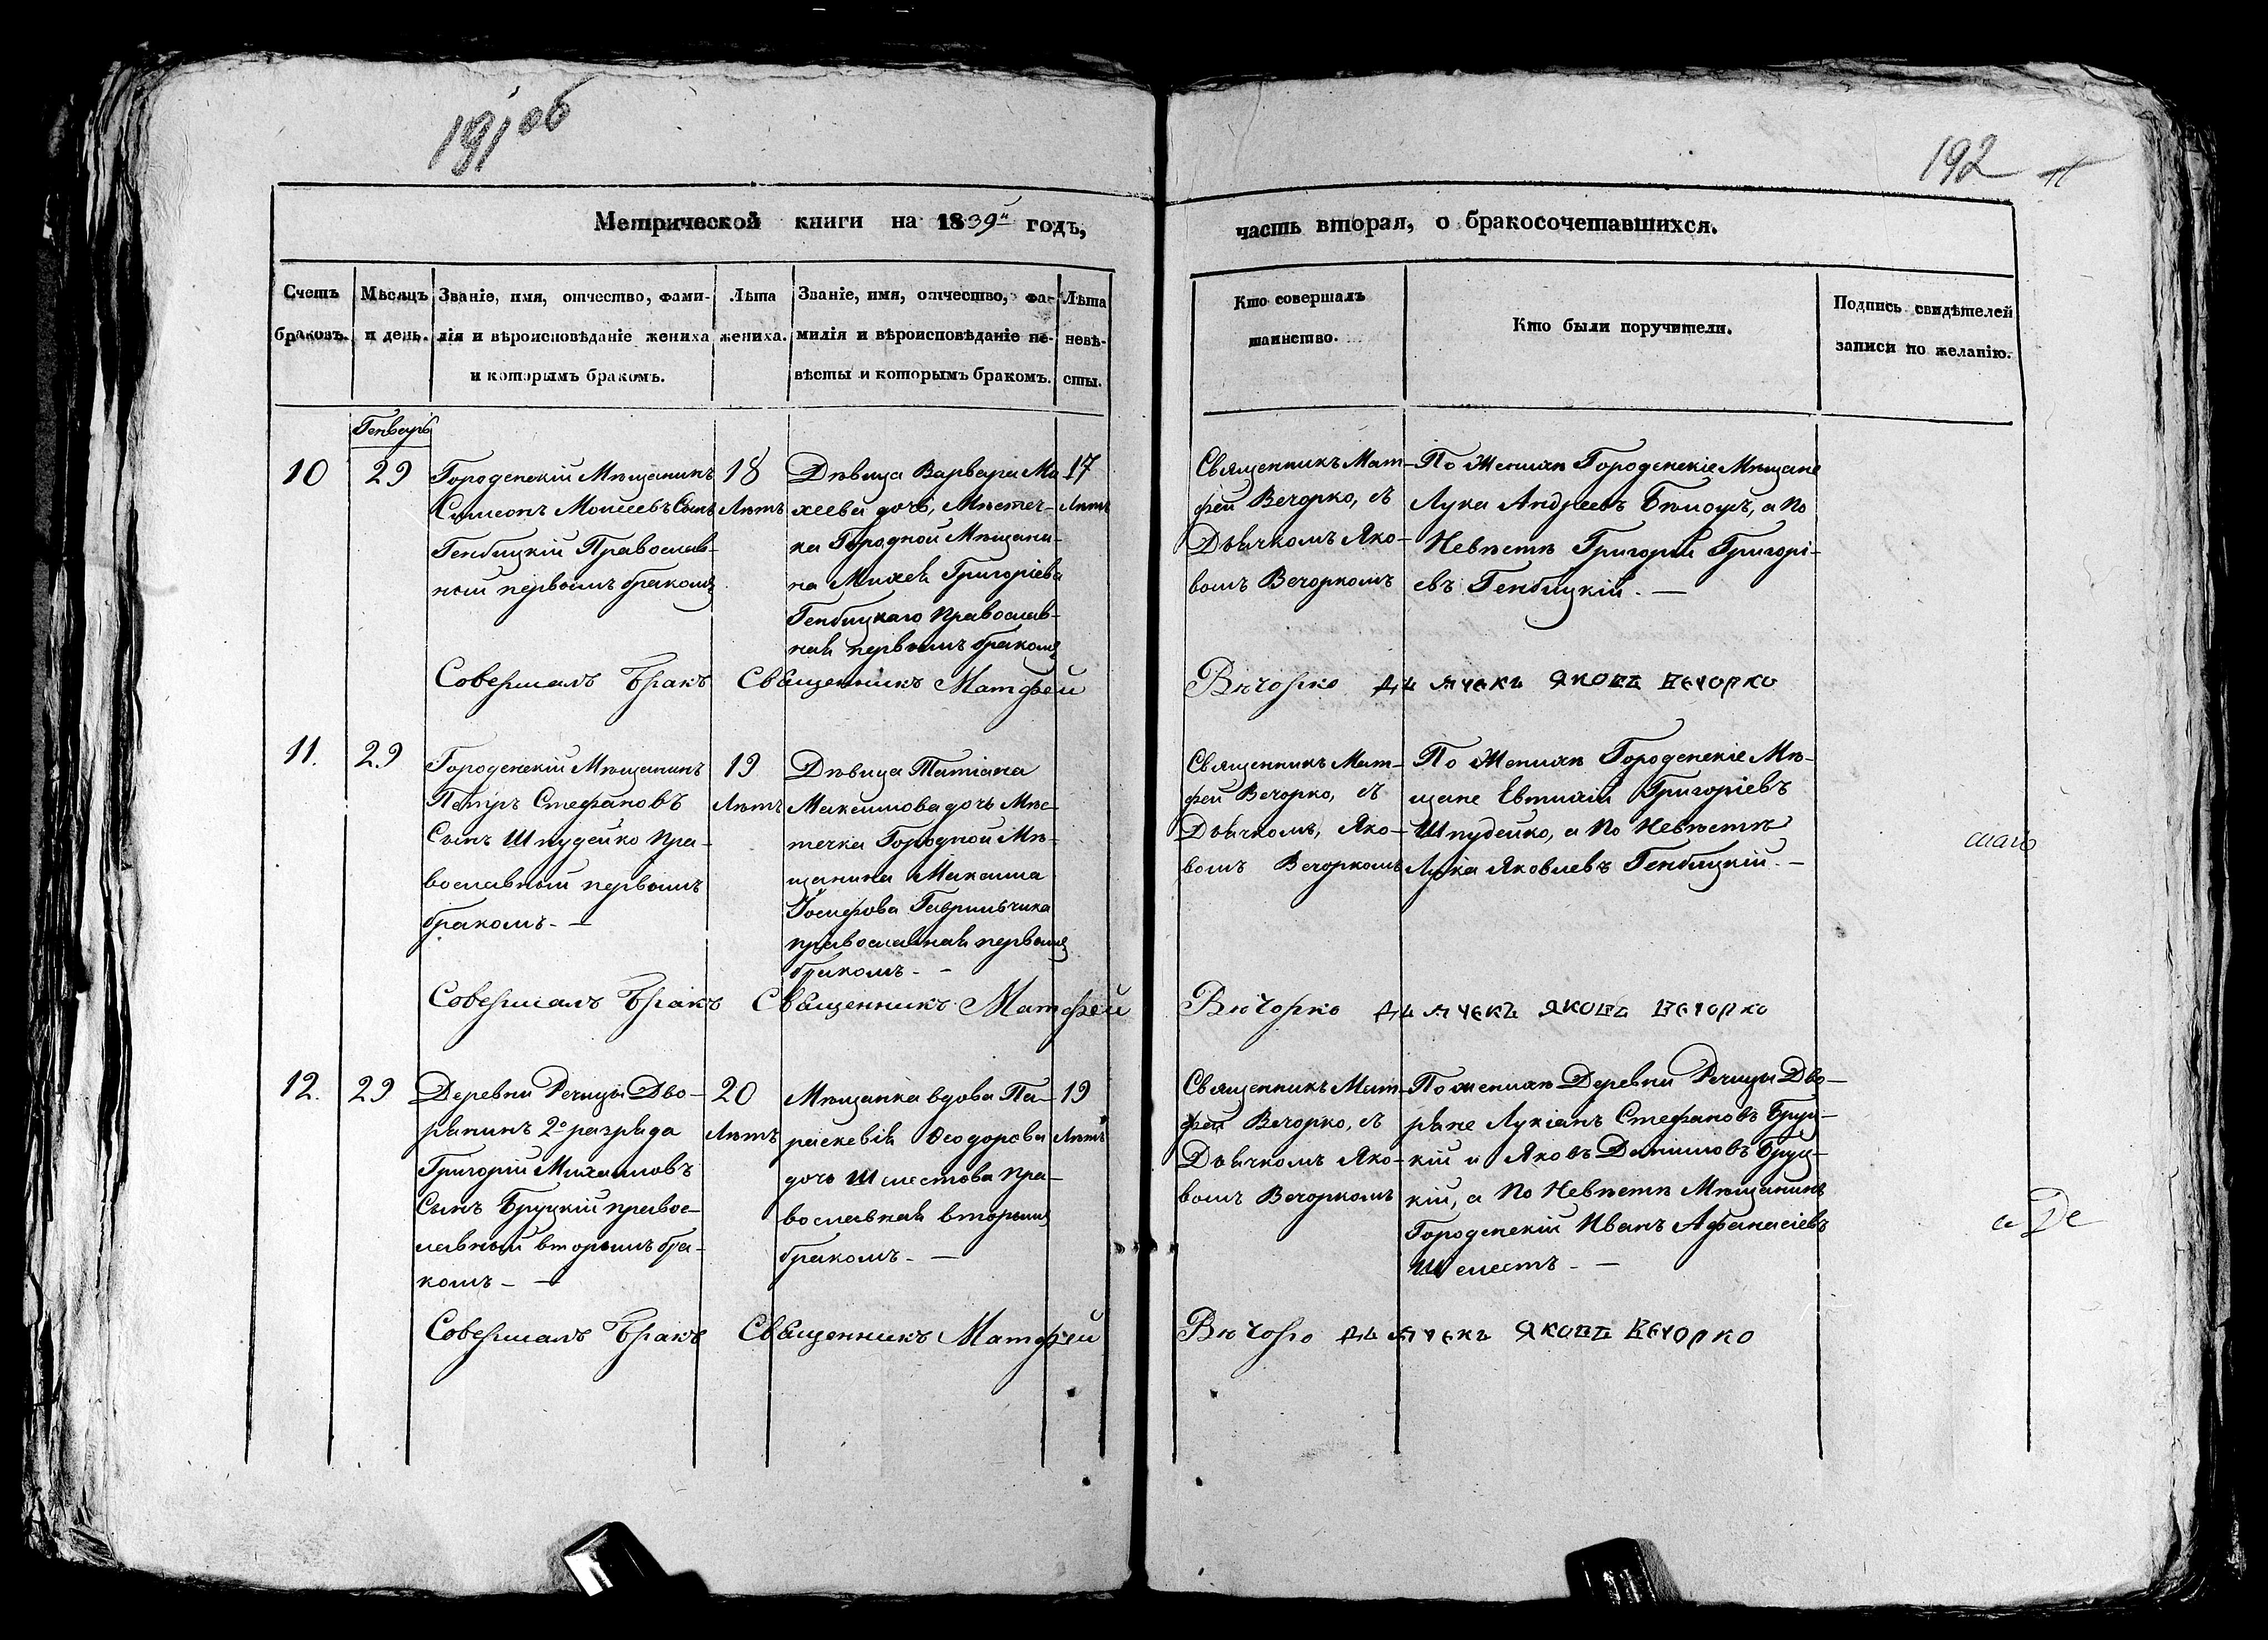 191 об
192
Метрической книги на 1839й годъ,
часть вторая, о бракосочетавшихся.
Счетъ браковъ.
Мѣсяцъ и день.
Званіе, имя, отчество, фами-
лія и вѣроисповѣданіе жениха
и которымъ бракомъ.
Лѣта
жениха.
Званіе, имя, отчество, фа-
милія и вѣроисповѣданіе не-
вѣсты и которымъ бракомъ.
Лѣта
невѣ-
сты.
Кто совершалъ
таинство.
Кто были поручители.
Подпись свидѣтелей
записи по желанію.
Генварь
10
29
Городенскій Мѣщанинъ
Симеонъ Моисеевъ Сынъ
Генбицкій Православ-
ный первымъ бракомъ
18
Лѣтъ
Дѣвица Варвара Ми
хеева дочь, Мѣстеч-
ка Городной Мѣщани-
на Михея Григоріева
Генбицкаго Православ-
ная первымъ бракомъ
17
Лѣтъ
Священникъ Мат-
фей Вечорко, съ
Дьячкомъ Яко-
вомъ Вечоркомъ
По Женихѣ Городенскіе Мѣщане
Лука Андреевъ, а По
Невѣстѣ Григорій Григорі-
евъ Генбицкій. —
Совершалъ Бракъ Священникъ Матфей Вечорко дьячекъ Яковъ Вечорко
11.
29
Городенскій Мѣщанинъ
Петръ Стефановъ
Сынъ Шпудейко Пра-
вославный первымъ
бракомъ. —
19
Лѣтъ
Дѣвица Татіана
Максимова дочь Мѣс-
течка Городной Мѣ-
щанина Максима
Іосифова Гаврильчика
православная первымъ
бракомъ. —
Священникъ Мат-
фей Вечорко, съ
Дьячкомъ, Яко-
вомъ Вечоркомъ
По Женихѣ Городенскіе Мѣ-
щане Евтихій Григоріевъ
Шпудейко, а По Невѣстѣ
Лука Яковлевъ Генбицкій. —
Совершалъ Бракъ Священникъ Матфей Вечорко дьячекъ Яковъ Вечорко
12.
29
Деревни Речицы Дво-
рянинъ 2о разряда
Григорій Михаиловъ
Сынъ Бруцкій правос-
лавный вторымъ бра-
комъ — —
20
Лѣтъ
Мѣщанка вдова Па-
раскевія Ѳеодорова
дочь Шелестова Пра-
вославная вторымъ
бракомъ. —
19
Лѣтъ
Священникъ Мат-
фей Вечорко, съ
Дьячкомъ Яко-
вомъ Вечоркомъ
По женихѣ Деревни Речицы Дво-
ряне Лукіанъ Стефановъ Бруц-
кій и Яковъ Даніиловъ Бруц-
кій, а По Невѣстѣ Мѣщанинъ
Городенскій Иванъ Афанасіевъ
Шелестъ. —
Совершалъ Бракъ Священникъ Матфей Вечорко дьячекъ Яковъ Вечорко